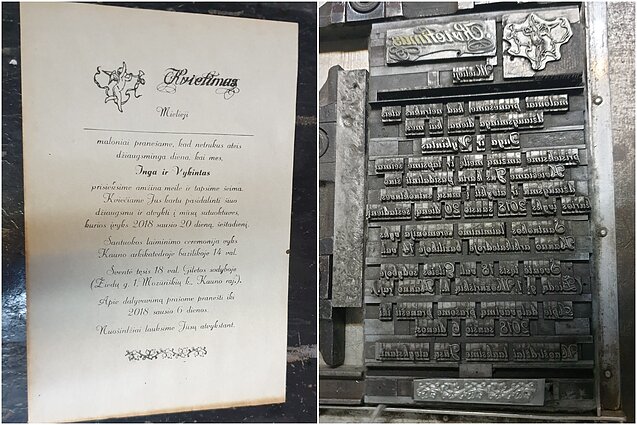 Kvietimas
Mielieji
maloniai pranešame, kad netrukus ateis
džiaugsminga diena, kai mes,
Inga ir Vykintas
prisieksime amžiną meilę ir tapsime šeima.
Kviečiame Jus kartu pasidalinti šiuo
džiaugsmu ir atvykti į mūsų sutuoktuves,
kurios įvyks 2018 sausio 20 dieną, šeštadienį.
Santuokos laiminimo ceremonija vyks
Kauno arkikatedroje bazilikoje 14 val.
Šventė tęsis 18 val. Giletos sodyboje
(Žiedų g. 1, Mozūriškių k., Kauno raj.).
Apie dalyvavimą prašome pranešti iki
2018 sausio 6 dienos.
Nuoširdžiai lauksime Jūsų atvykstant.